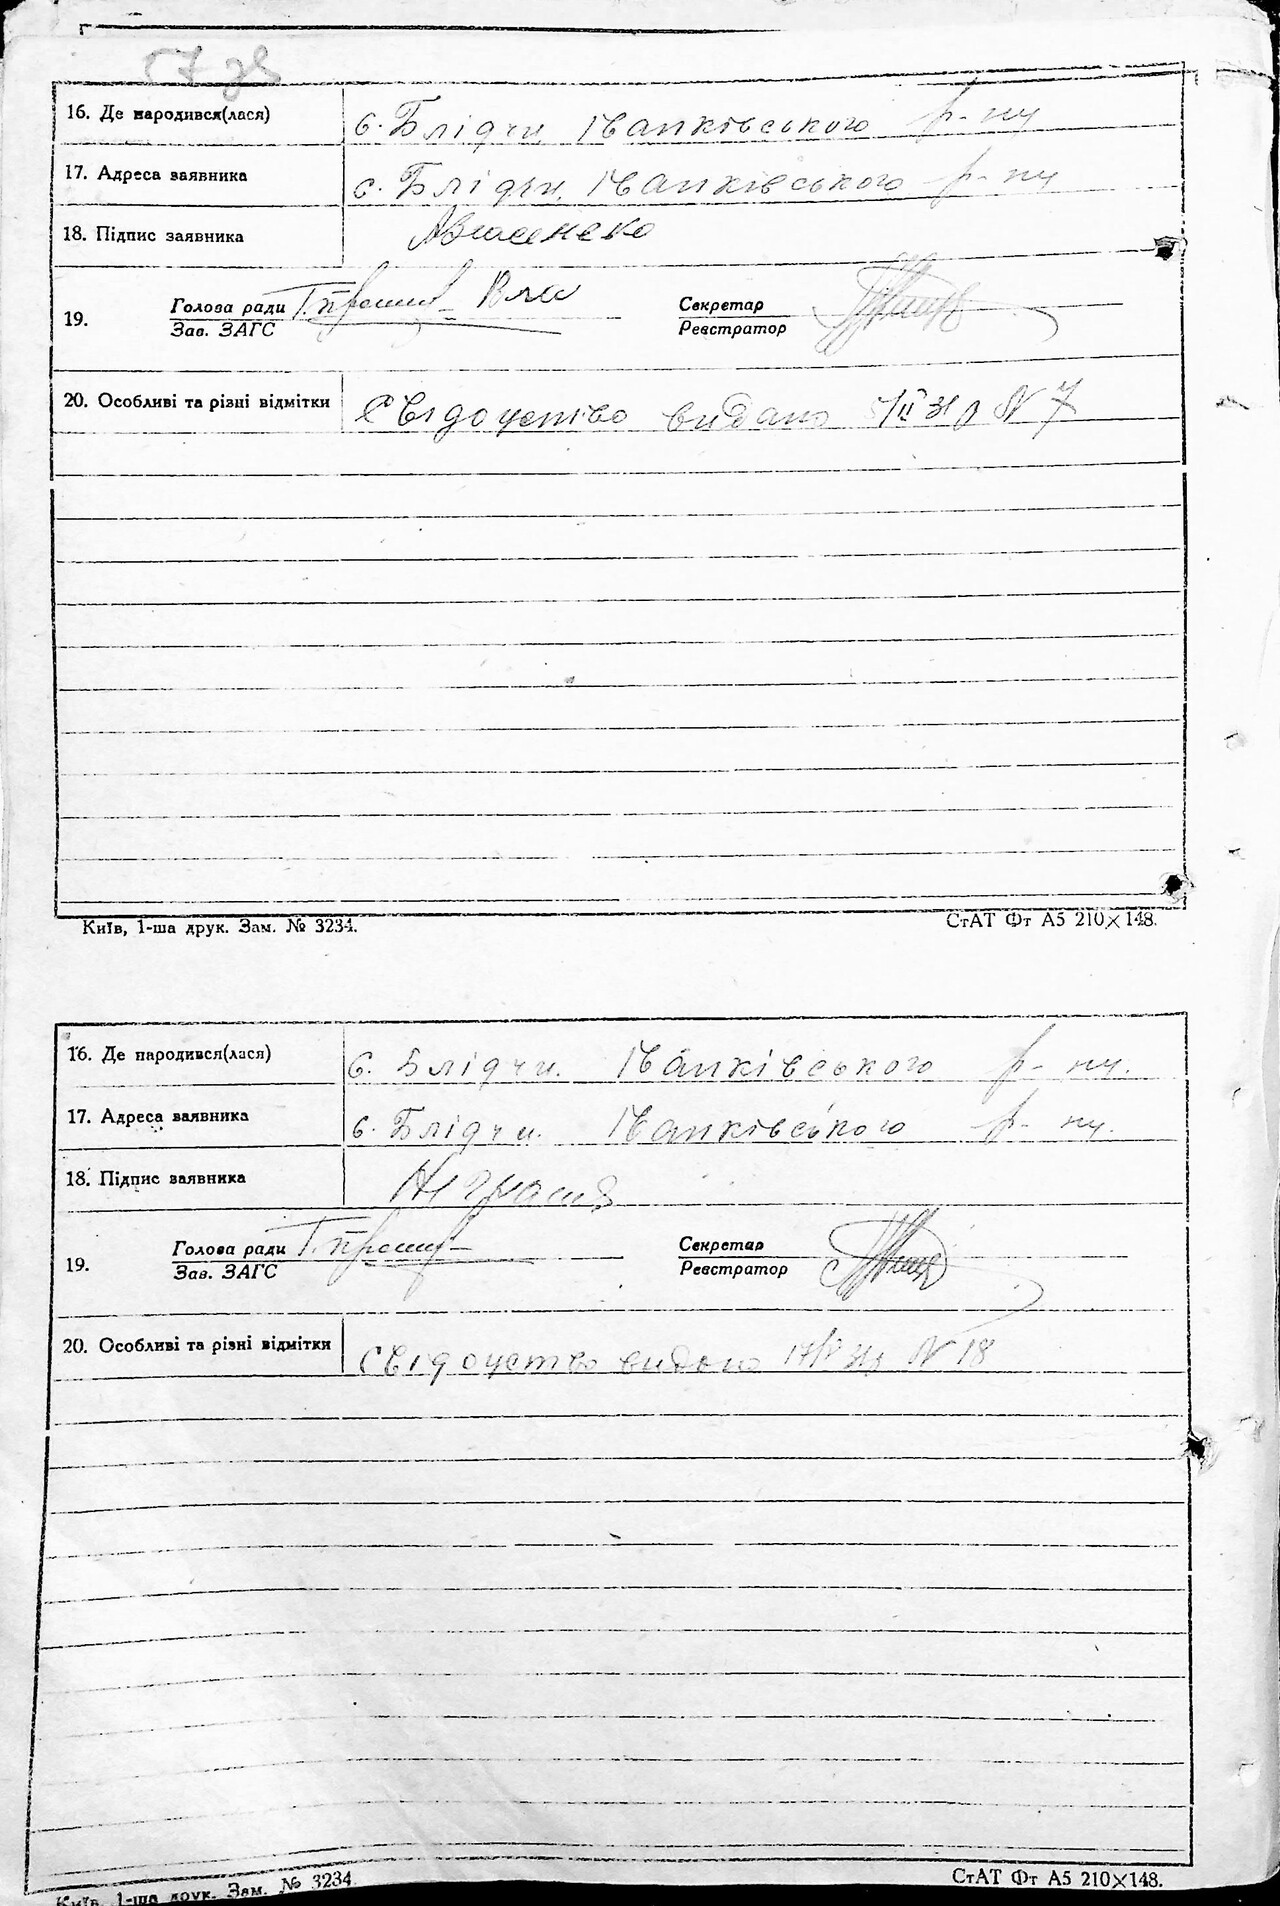 16. Де народився(лася) с. Блідчи Іванківського р-ну
17. Адреса заявника с. Блідчи. Іванківського р-ну
18. Підпис заявника
19. Голова ради Секретар
Зав. ЗАГС Реєстратор
20. Особливі та різні відмітки Свідоцтво видано 5/II 31 р N 7
Київ, 1-ша друк. Зам. № 3234. СтАТ Фт А5 210×148.
16. Де народився(лася) с. Блідчи. Іванківського р-ну.
17. Адреса заявника с. Блідчи. Іванківського р-ну.
18. Підпис заявника
19. Голова ради Секретар
Зав. ЗАГС Реєстратор
20. Особливі та різні відмітки Свідоцтво видано N 18
Київ, 1-ша друк. Зам. № 3234. СтАТ Фт А5 210×148.